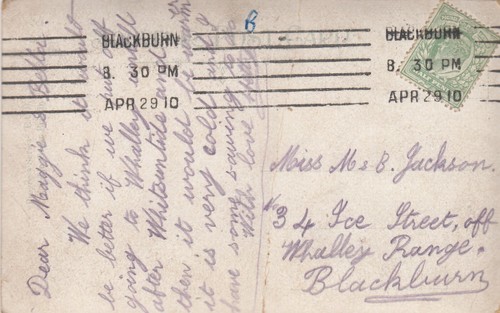 B
BLACKBURN
8. 30 PM
APR 29 10
BLACKBURN
8. 30 PM
APR 29 10
Dear Maggie & Bella
We think it would
be better if we put off
going to Whalley until
after Whitsuntide and
then it would be warm
it is very cold and I
have some sewing to do
With love
Miss M & B. Jackson.
34 Ice Street, off
Whalley Range.
Blackburn